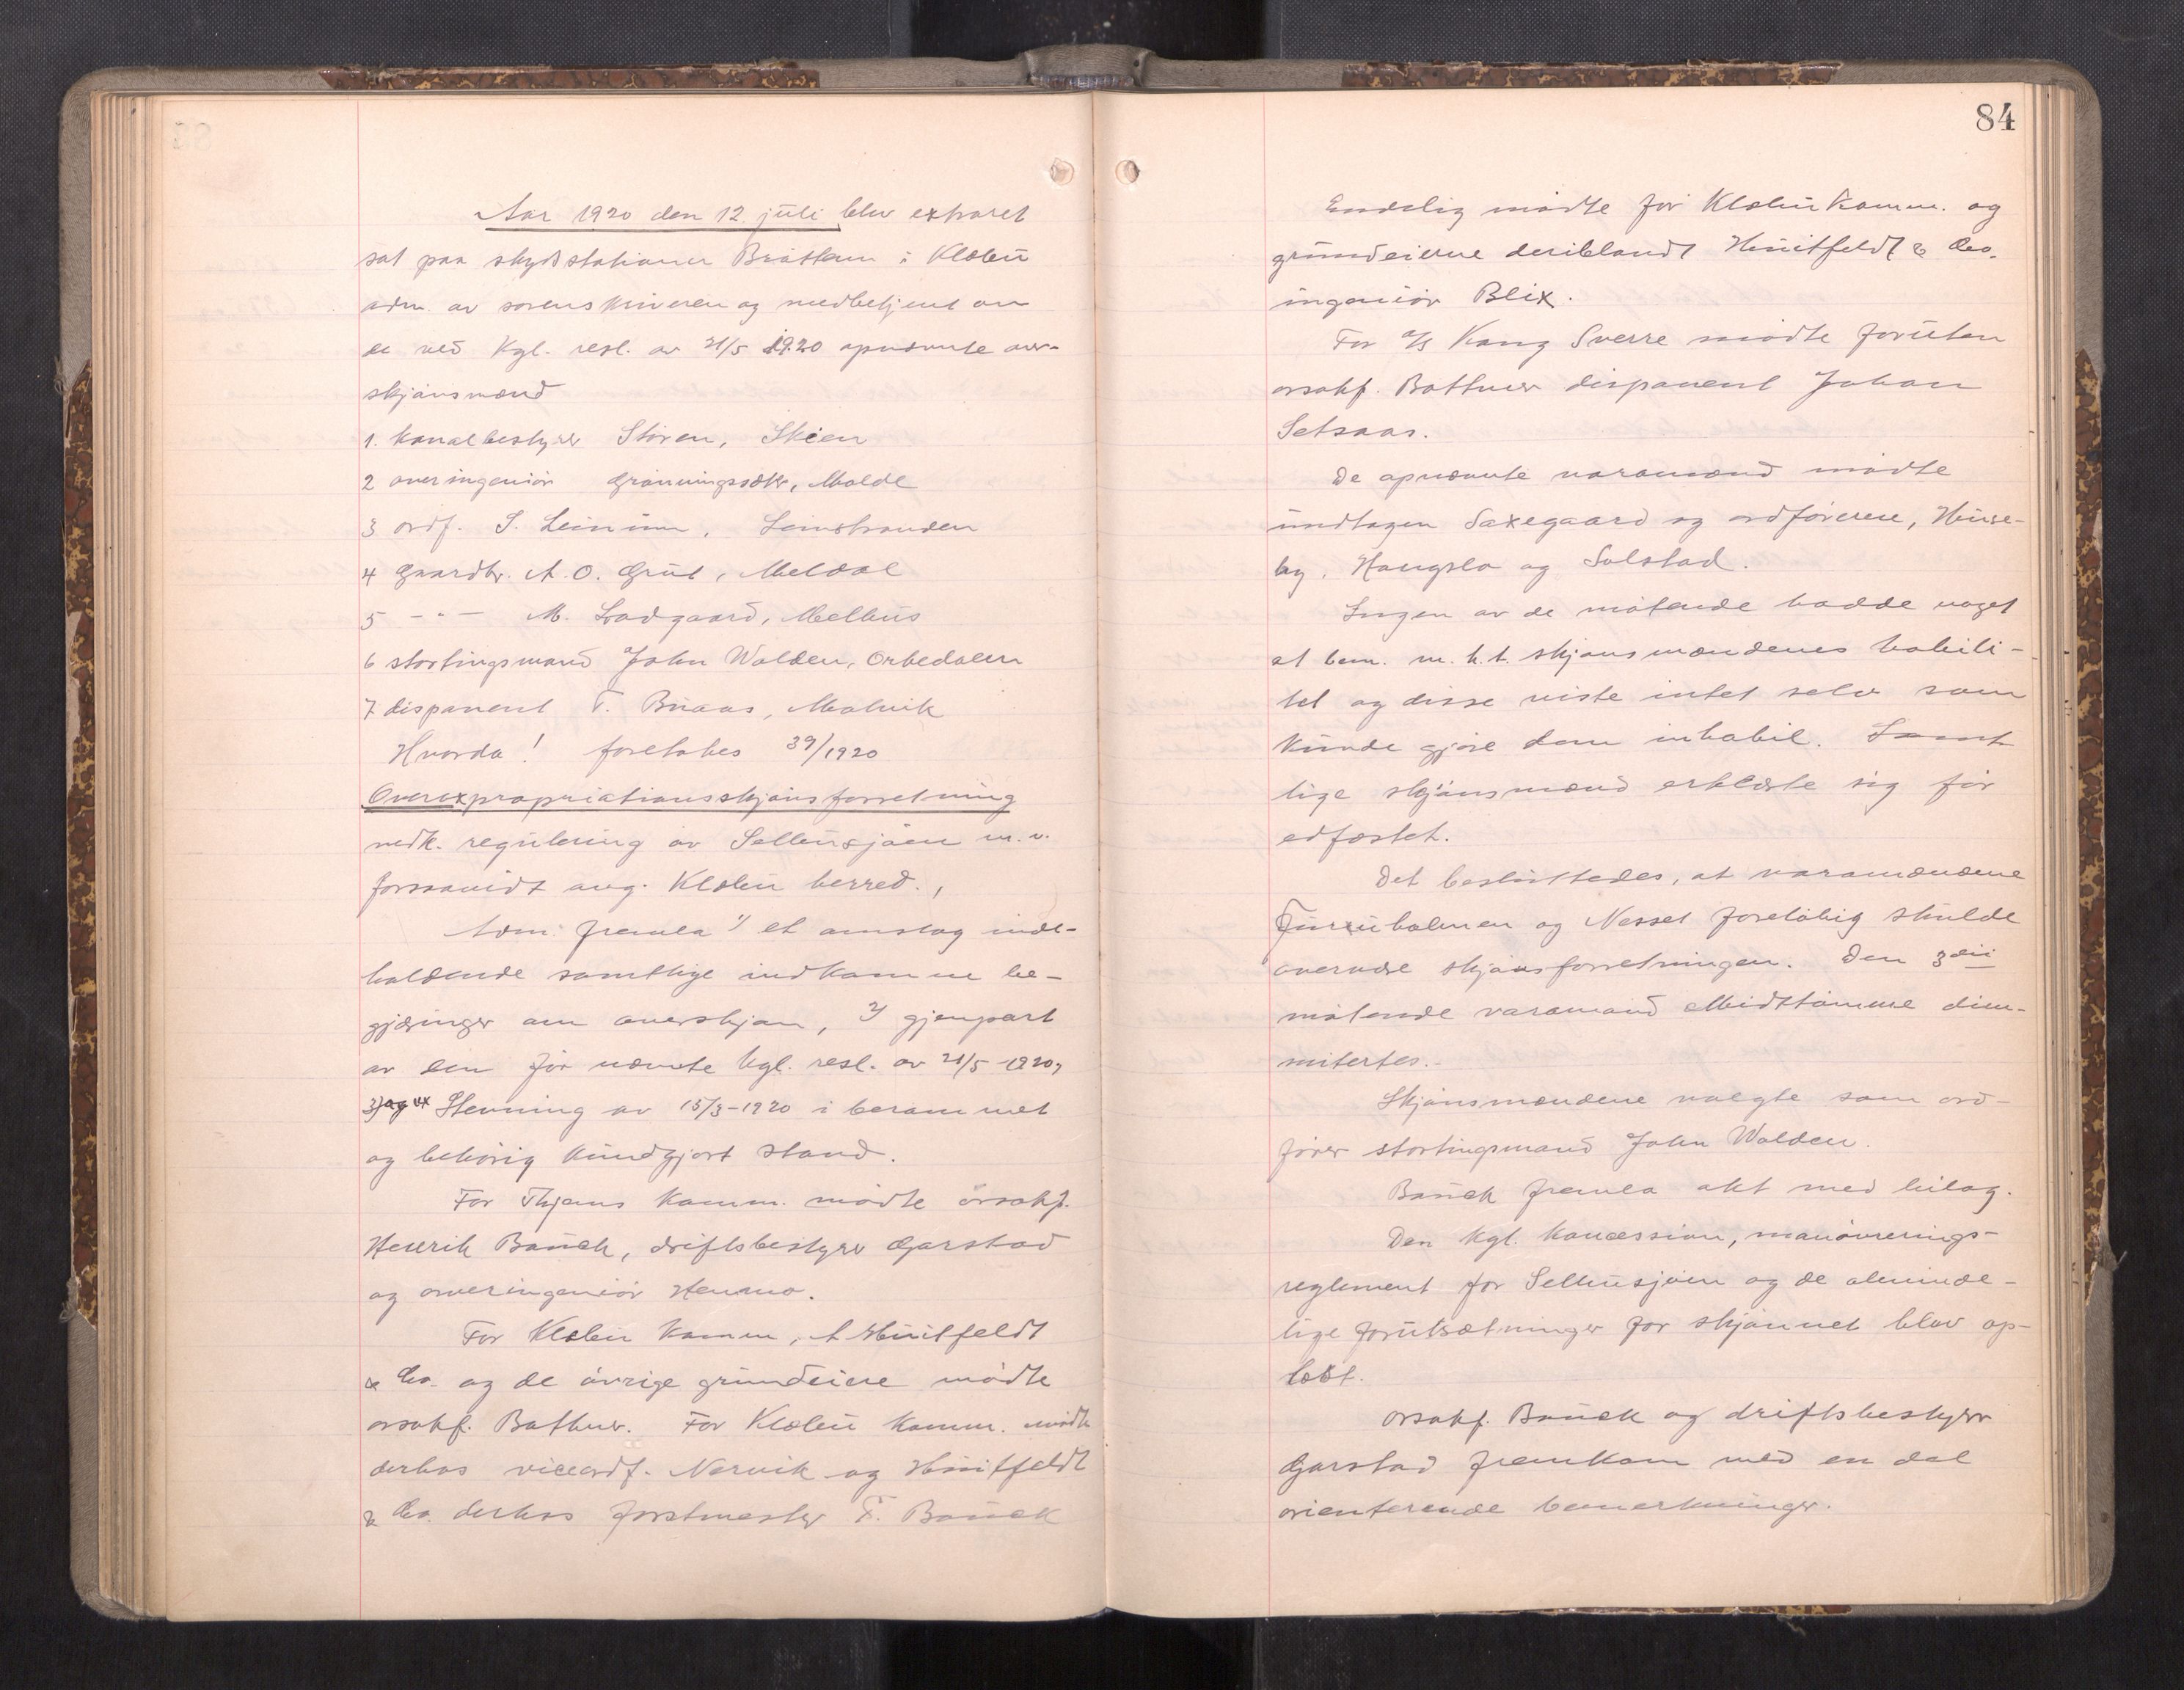 Aar 1920 den 12. juli blev extraret
sat paa skydsstationen Bråttem i Klæbu
adm. av sorenskriveren og medbetjent av
de ved Kgl. resl. av 21/5 1920 opnævnte over-
skjønsmænd
1. Kanalbestyrer Støren, Skien
2 overingeniør Grønningssæter, Molde
3 ordf. S. Leinum, Leinstranden
4 gaardbr. A. O. Grut, Meldal
5 -"- M. Ladgaard, Melhus
6 stortingsmand John Wolden, Orkedalen
7 disponent T. Buaas, Malvik
Hvorda! foretokes 39/1920
Overexpropriationsskjønsforretning
vedk. regulering av Selbusjøen m.v.
forsaavidt ang. Klæbu herred.,
Adm. fremla 1) et omslag inde-
holdende samtlige indkomne be-
gjæringer om overskjøn, 2) gjenpart
av den før nævnte kgl. resl. av 21/5-1920,
3) og Stevning av 15/3-1920 i berammet
og behørig kundgjort stand.
For Thjems Komm. mødte orsakf.
Henrik Bauck, driftsbestyrer Garstad
og overingeniør
For Klæbu Komm., A Huitfeldt
& Co. og de øvrige grundeiere mødte
orsakf. Bøttner. For Klæbu Komm. mødte
derhos viceordf. Nervik og Huitfeldt
& Co. derhos forstmester F. Bauck
84
Endelig mødte for Klæbu Komm. og
grundeierne deriblandt Huitfeldt & Co.
ingeniør Blix.
For A/S Kong Sverre mødte foruten
orsakf. Bøttner disponent Johan
Setsaas.
De opnævnte varamænd mødte
undtagen Saxegaard og ordførerne, Huse-
by, Haugslo og Solstad.
Ingen av de møtende hadde noget
at bem. m.h.t. skjønsmændenes habili-
tet og disse viste intet selv som
kunde gjøre dem inhabil. Samt
lige skjønsmænd erklærte sig før
edfæstet.
Det besluttedes, at varamændene
Furuholmen og Nesset foreløbig skulde
overvære skjønsforretningen. Den 3die
møtende varamand Midttømme dim-
mitertes.-
Skjønsmændene valgte som ord-
fører stortingsmand John Wolden.
Bauck fremla akt med bilag.
Den kgl. Koncession, manøvrerings-
reglement for Selbusjøen og de alminde-
lige forutsætninger for skjønnet blev op-
læst.
Orsakf. Bauck og driftsbestyrer
Garstad fremkom med en del
orienterende bemerkninger.